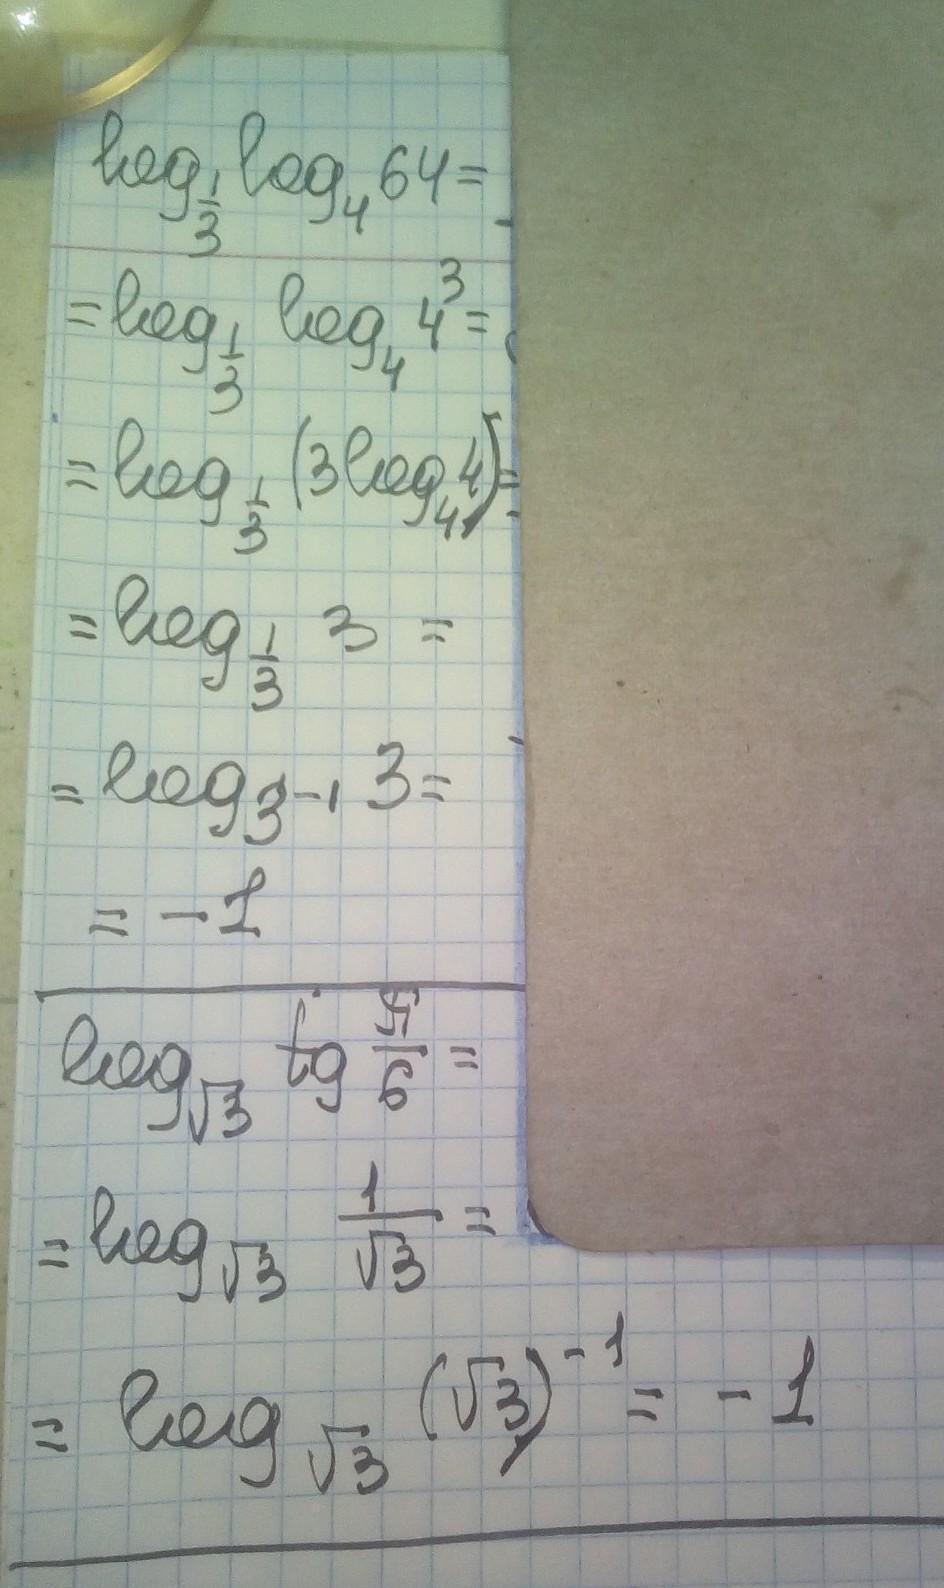 log_{1/3} log_4 64 =
= log_{1/3} log_4 4^3 =
= log_{1/3} (3 log_4 4) =
= log_{1/3} 3 =
= log_{3^{-1}} 3 =
= -1
log_{√3} tg π/6 =
= log_{√3} 1/√3 =
= log_{√3} (√3)^{-1} = -1